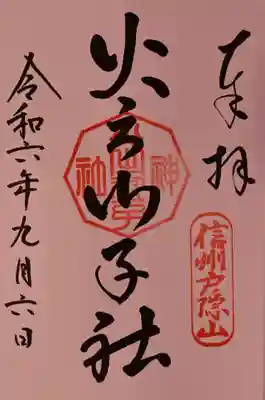 奉拝
信州戸隠山
火之御子社
令和六年九月六日